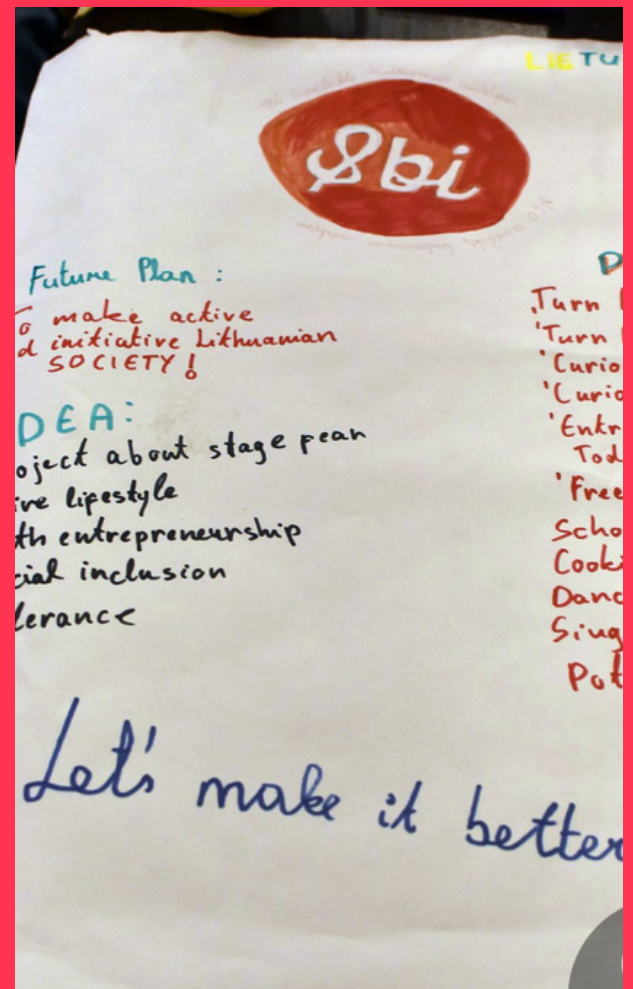 LIETU
8bi
Future Plan :
To make active
d initiative Lithuanian
SOCIETY!
DEA:
oject about stage pear
ive lifestyle
th entrepreneurship
cial inclusion
lerance
D
'Turn
'Turn
'Curio
'Curio
'Entr
Tod
'Free
Scho
Cooki
Danc
Sing
Pot
Let's make it better